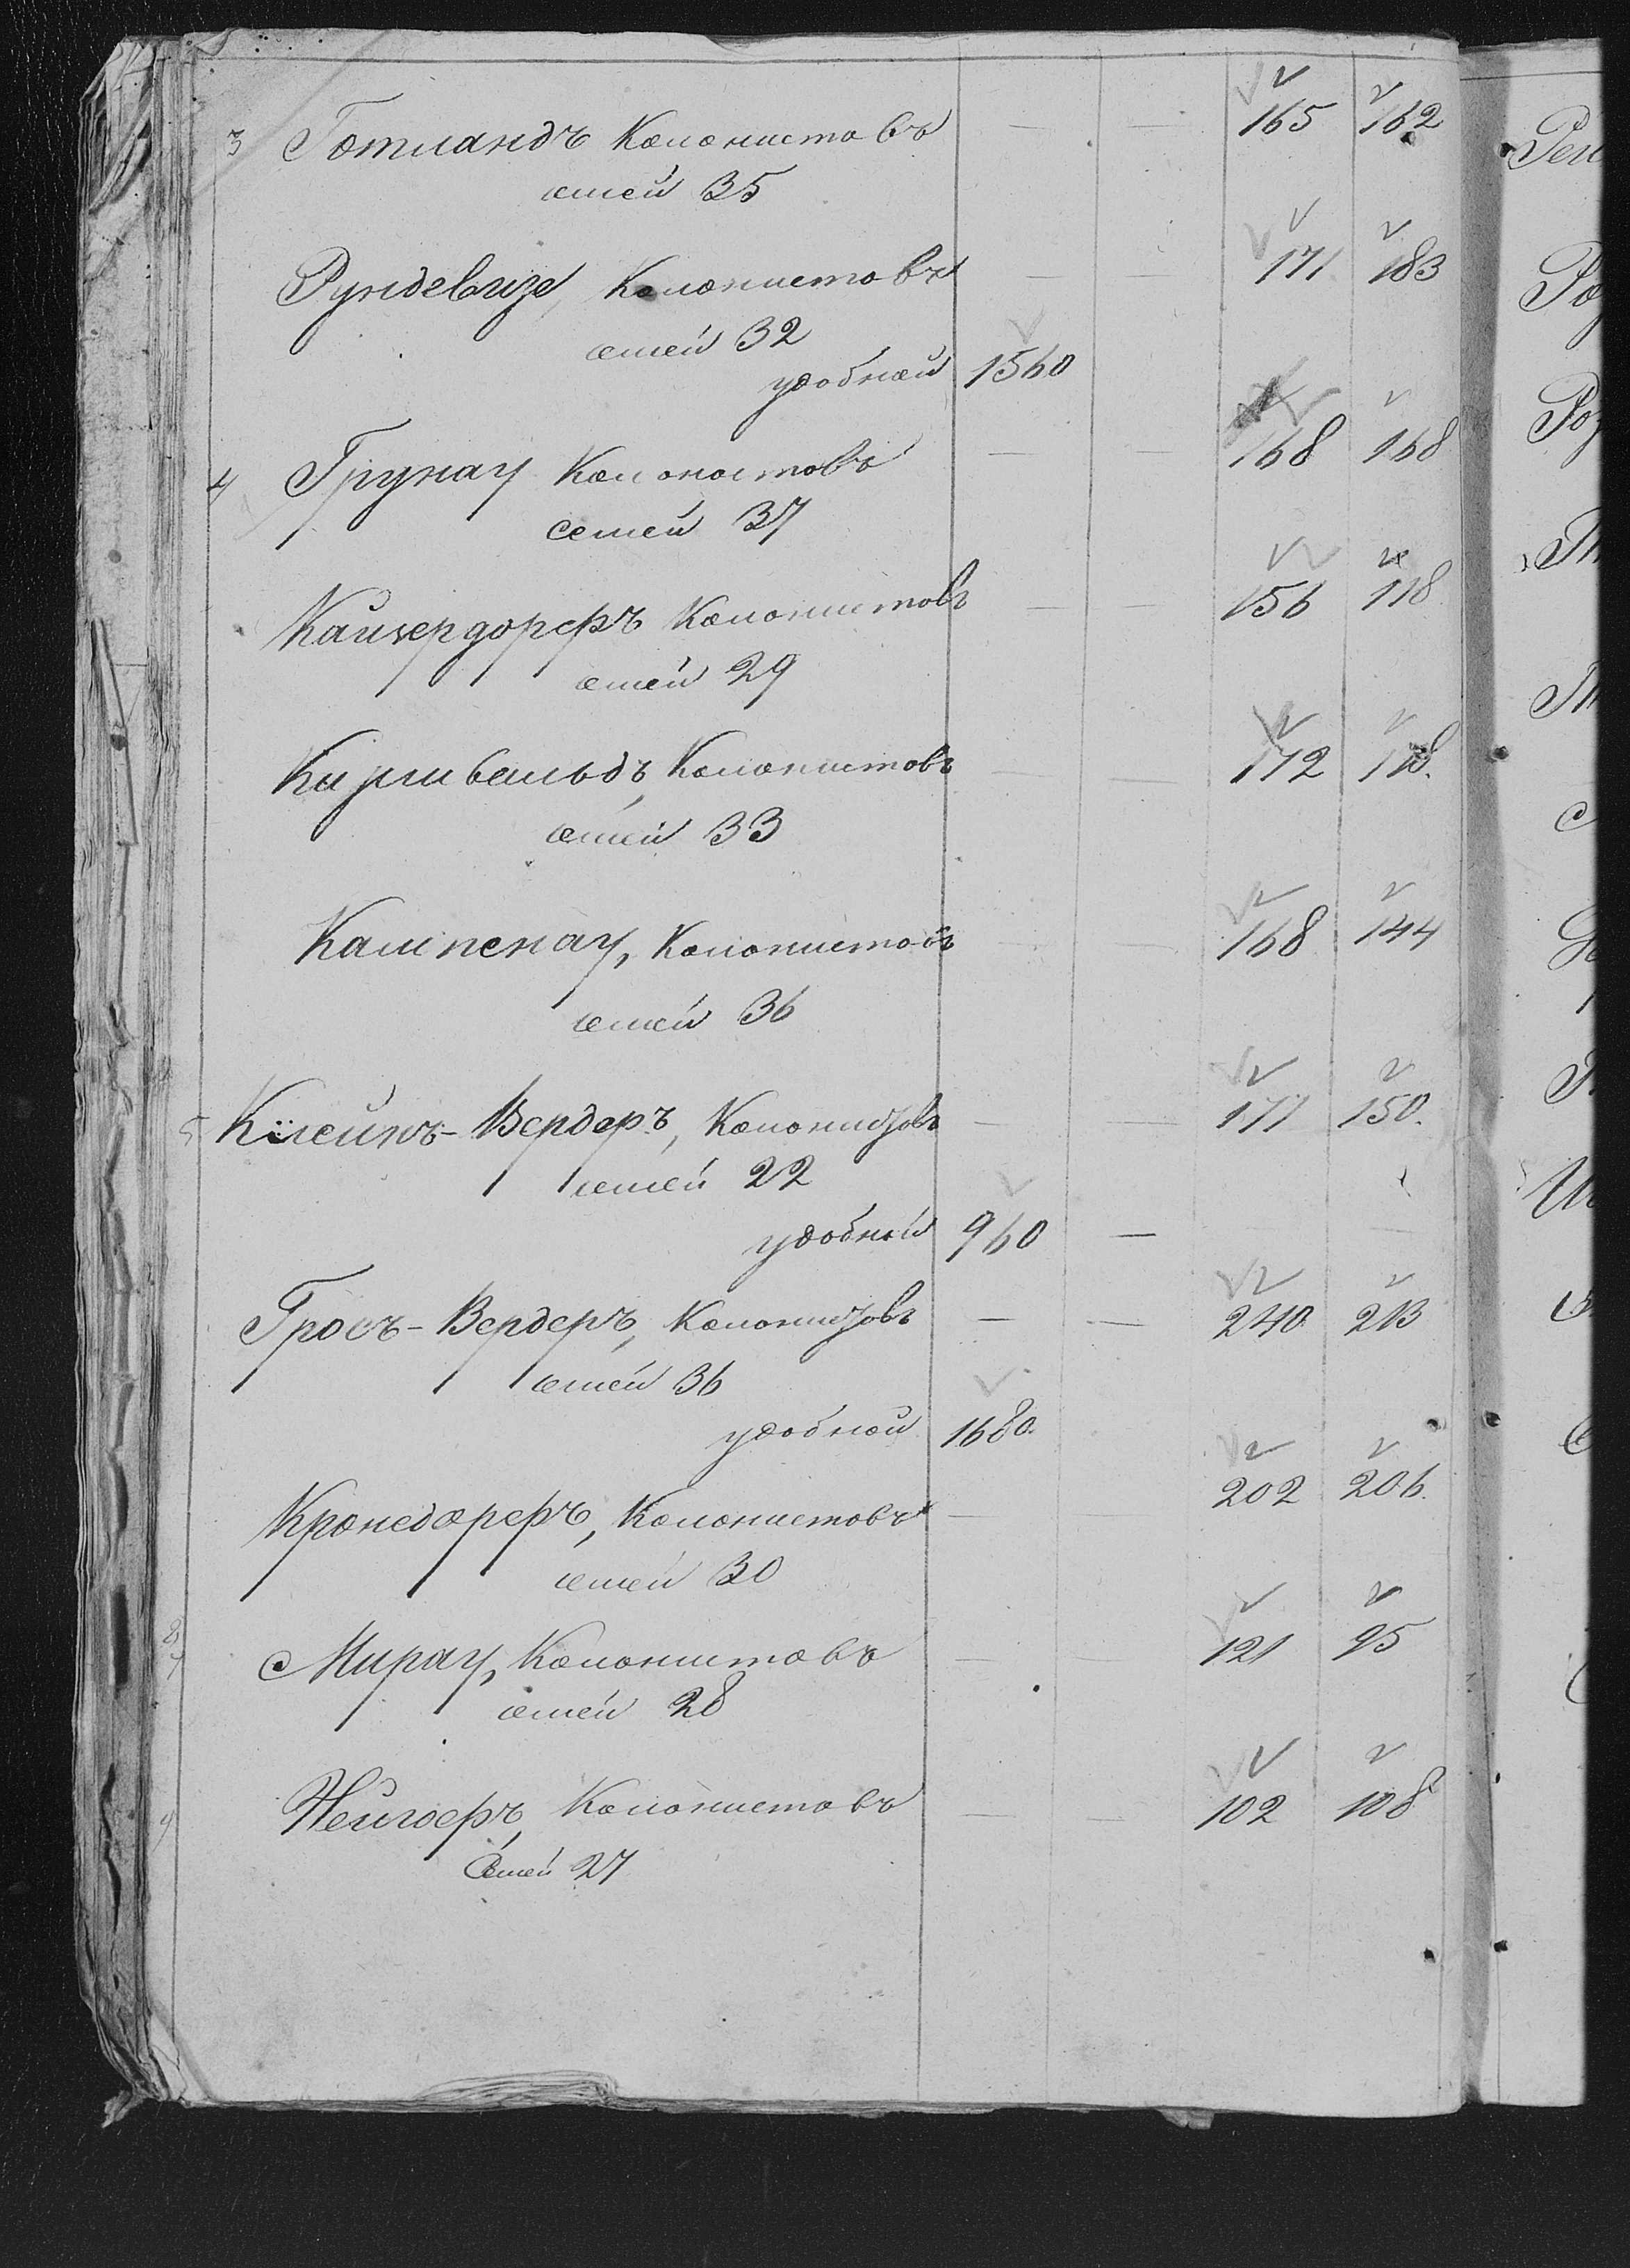 3 Готландъ Колонистовъ — — 165 162
семей 35
Рундевизе, Колонистовъ — — 171 183
семей 32
удобной 1560
4 Грунау Колонистовъ — — 168 168
семей 37
Кайзердорфъ Колонистовъ — — 156 118
семей 29
Киршвальдъ, Колонистовъ — 172
семей 33
Кампенау, Колонистовъ 168 144
семей 36
5 Клейнъ-Вердеръ, Колонистовъ — — 177 150.
семей 22
удобной 960 —
Гросъ-Вердеръ, Колонистовъ — — 240 213
семей 36
удобной 1680.
Кронсдорфъ, Колонистовъ — 202 206.
семей 30
Мирау, Колонистовъ — — 121 95
семей 28
Нейгоеръ, Колонистовъ — — 102 108
Семей 27
Рен